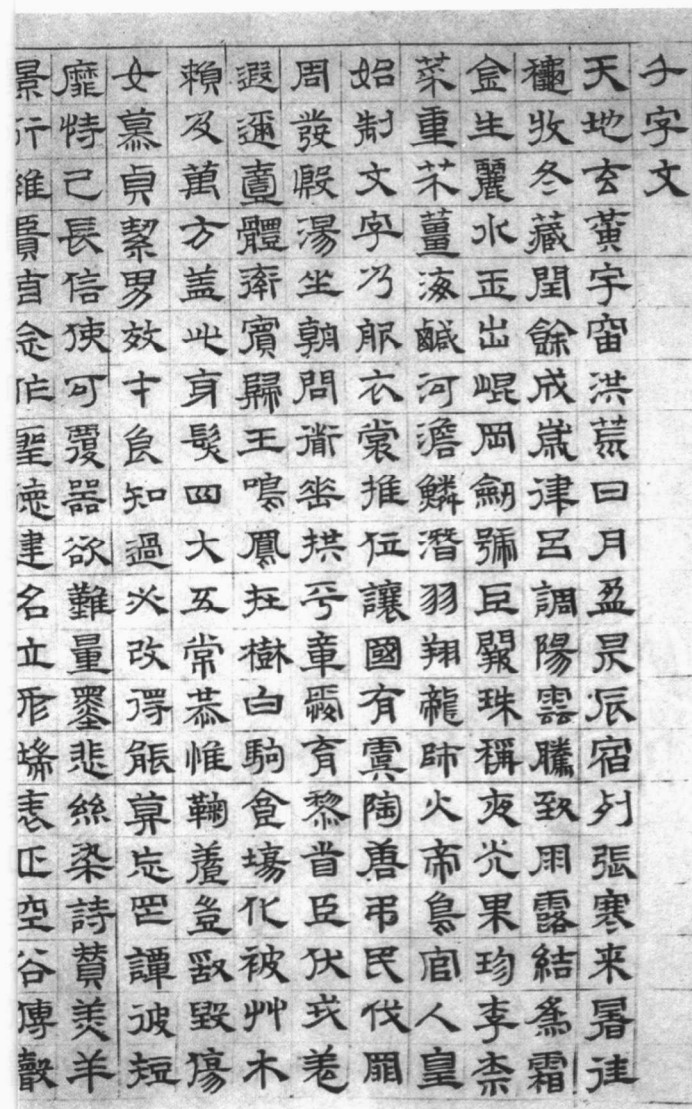 千字文
天地玄黃宇宙洪荒日月盈昃辰宿列張寒来暑往
穐收冬藏閏餘成歲律呂調陽雲騰致雨露結為霜
金生麗水玉出崐岡劔號巨闕珠稱夜光果珍李柰
菜重芥薑海鹹河澹鱗潛羽翔龍師火帝鳥官人皇
始制文字乃服衣裳推位讓國有虞陶唐弔民伐罪
周發殷湯坐朝問道垂拱平章愛育黎首臣伏戎羌
遐邇壹體率賓歸王鳴鳳在樹白駒食場化被艸木
賴及萬方盖此身髮四大五常恭惟鞠養豈敢毀傷
女慕貞絜男效才良知過必改得能莫忘罔譚彼短
靡恃己長信使可覆器欲難量墨悲絲染詩贊羔羊
景行維賢克念作聖德建名立形端表正空谷傳聲